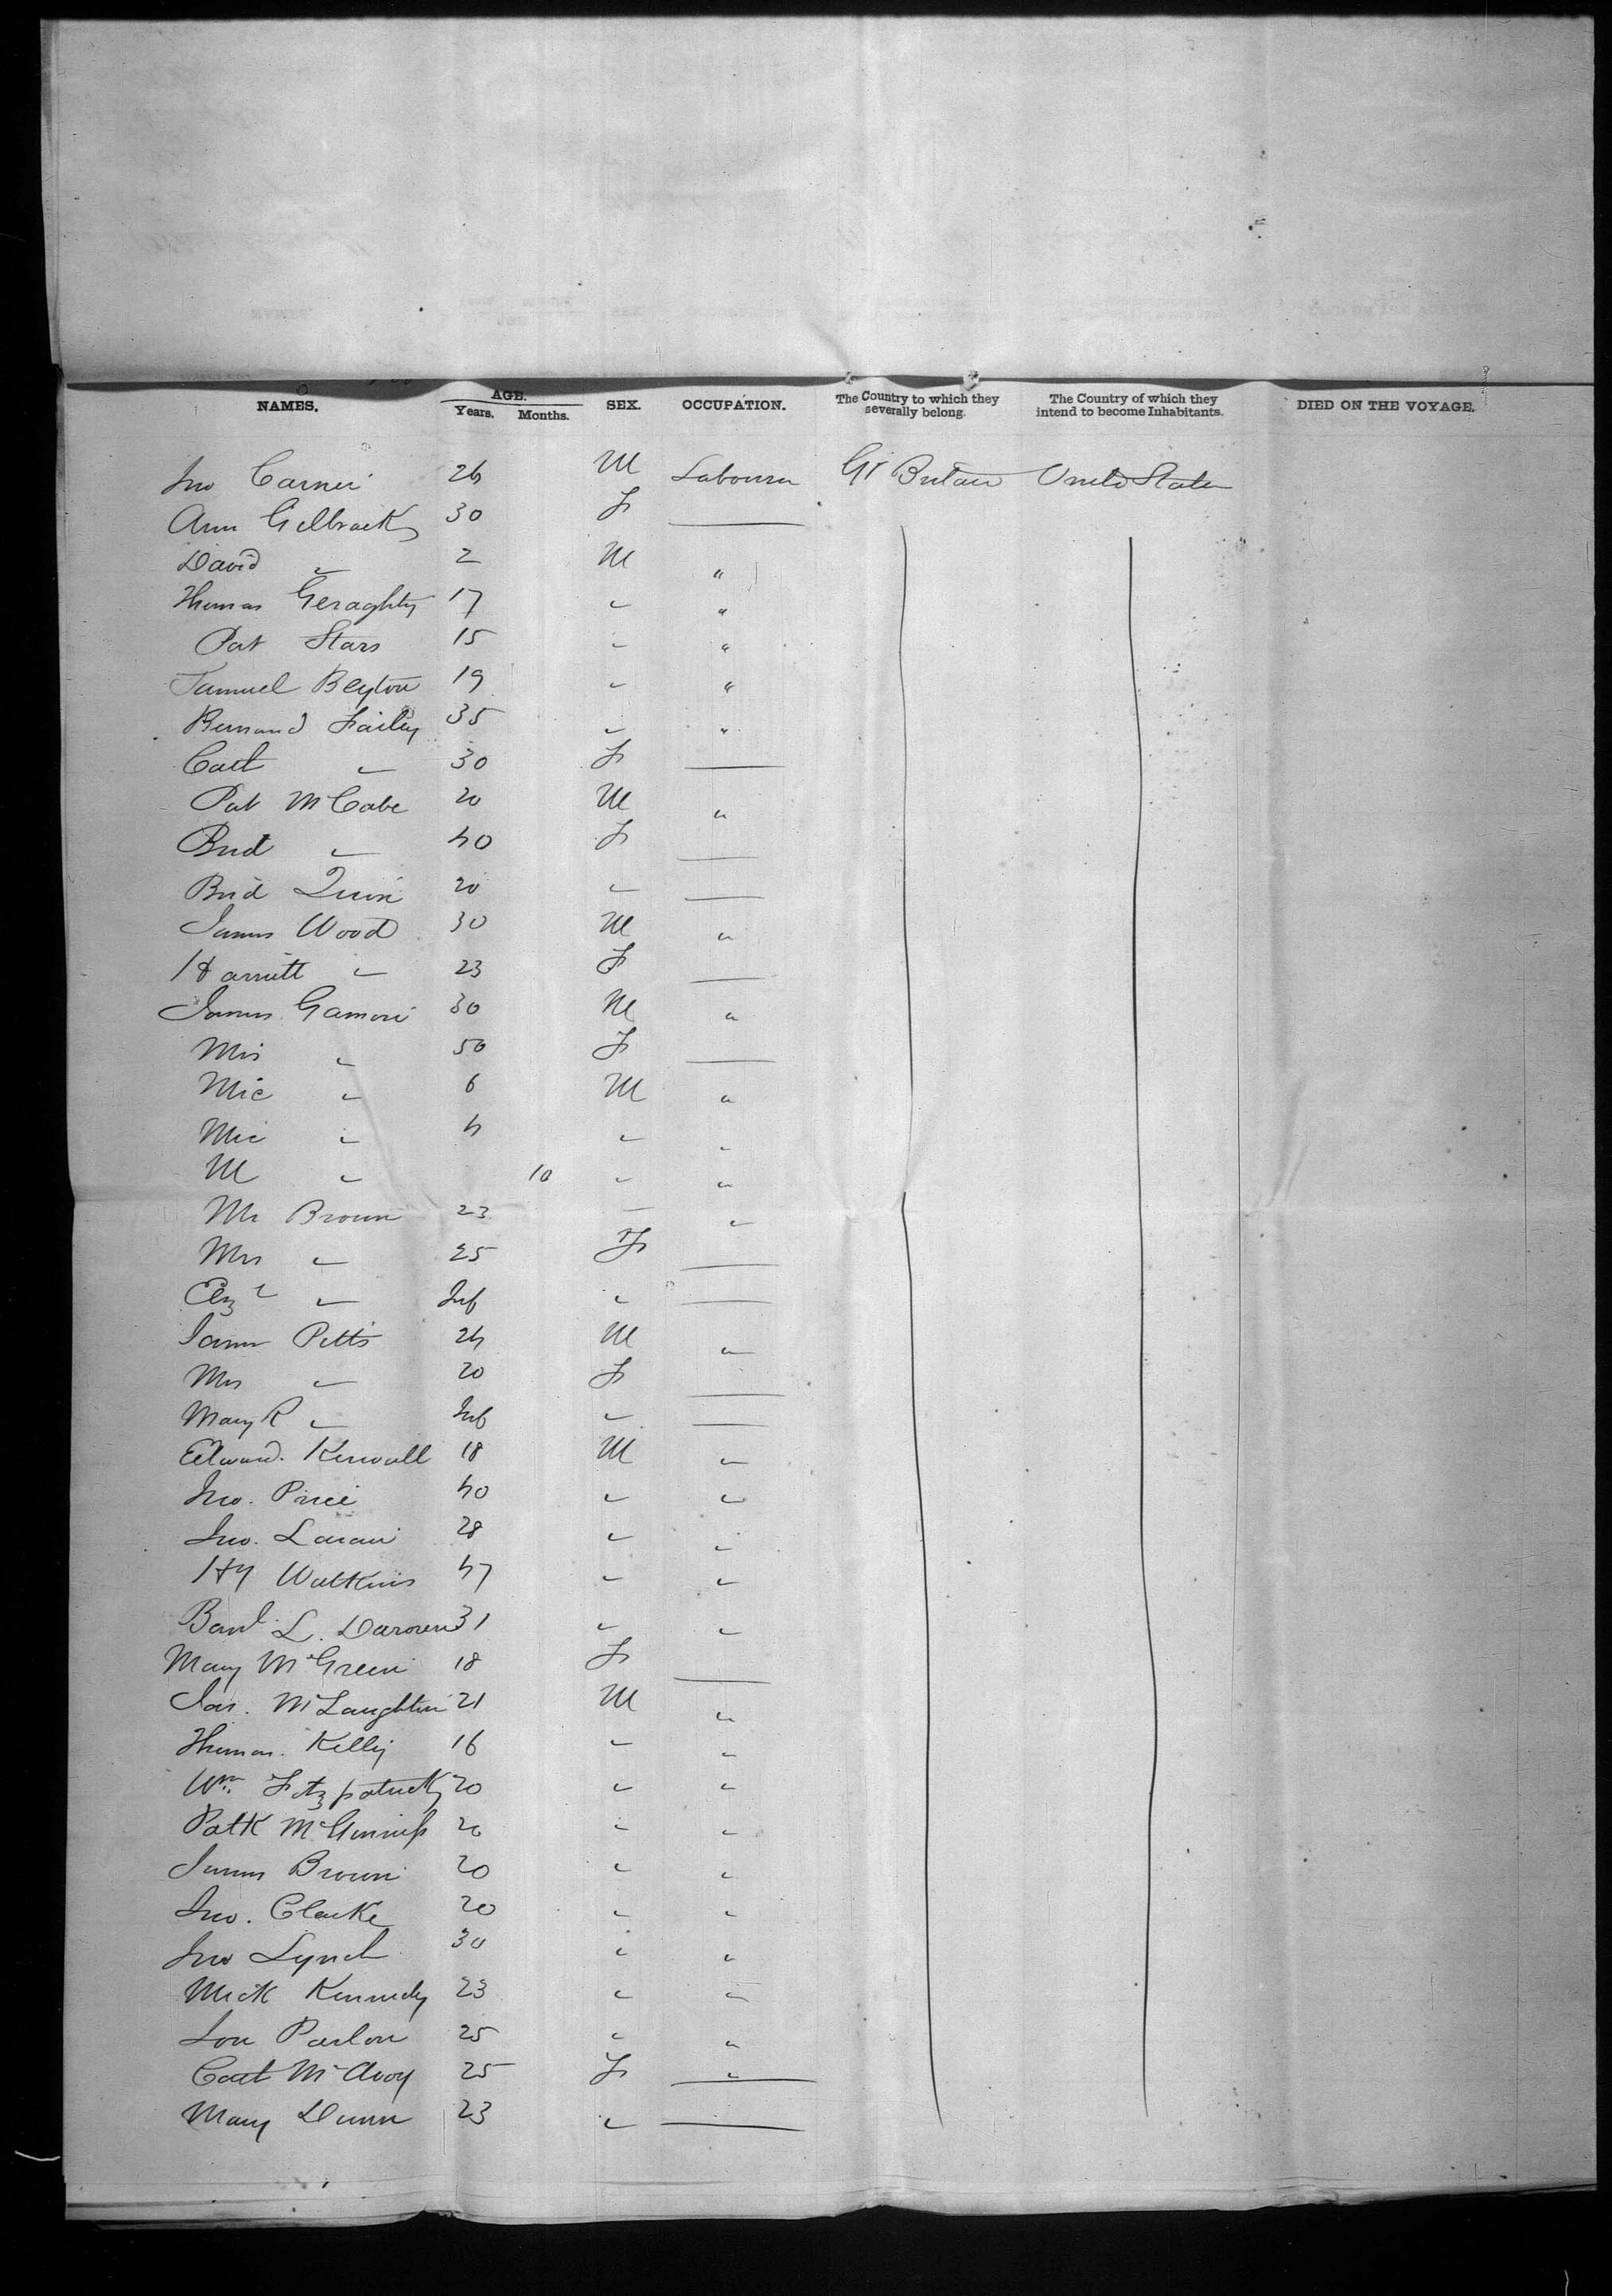 NAMES. AGE. Years. Months. SEX. OCCUPATION. The Country to which they severally belong. The Country of which they intend to become Inhabitants. DIED ON THE VOYAGE.
Jno 26 M Labourer Gt Britain United States
Ann Gilbraith 30 F ——
David " 2 M "
Thomas Geraghty 17 " "
Pat Stars 15 " "
Samuel Beyton 19 " "
Bernard Farley 35 " "
Cath " 30 F ——
Pat McCabe 20 M "
Brid " 40 F ——
Brid Quin 20 " ——
James Wood 30 M "
Harriett " 23 F ——
James 30 M "
Mrs " 50 F ——
Mic " 6 M "
Mic " 4 " "
M " 10 " "
Mr Brown 23 " "
Mrs " 25 F ——
Elizth " Inf " ——
James Pitts 24 M "
Mrs " 20 F ——
Mary R " Inf " ——
Edward 18 M "
Jno. Price 40 " "
Jno. 28 " "
Hy Watkins 47 " "
L. 31 " "
Mary McGreen 18 F ——
Jas. McLaughlin 21 M "
Thomas Kelly 16 " "
Wm. Fitzpatrick 20 " "
Patk McGinniss 20 " "
James Brown 20 " "
Jno. Clarke 20 " "
Jno Lynch 30 " "
Mick Kennedy 23 " "
25 " "
Cath McAvoy 25 F "
Mary Dunn 23 " ——